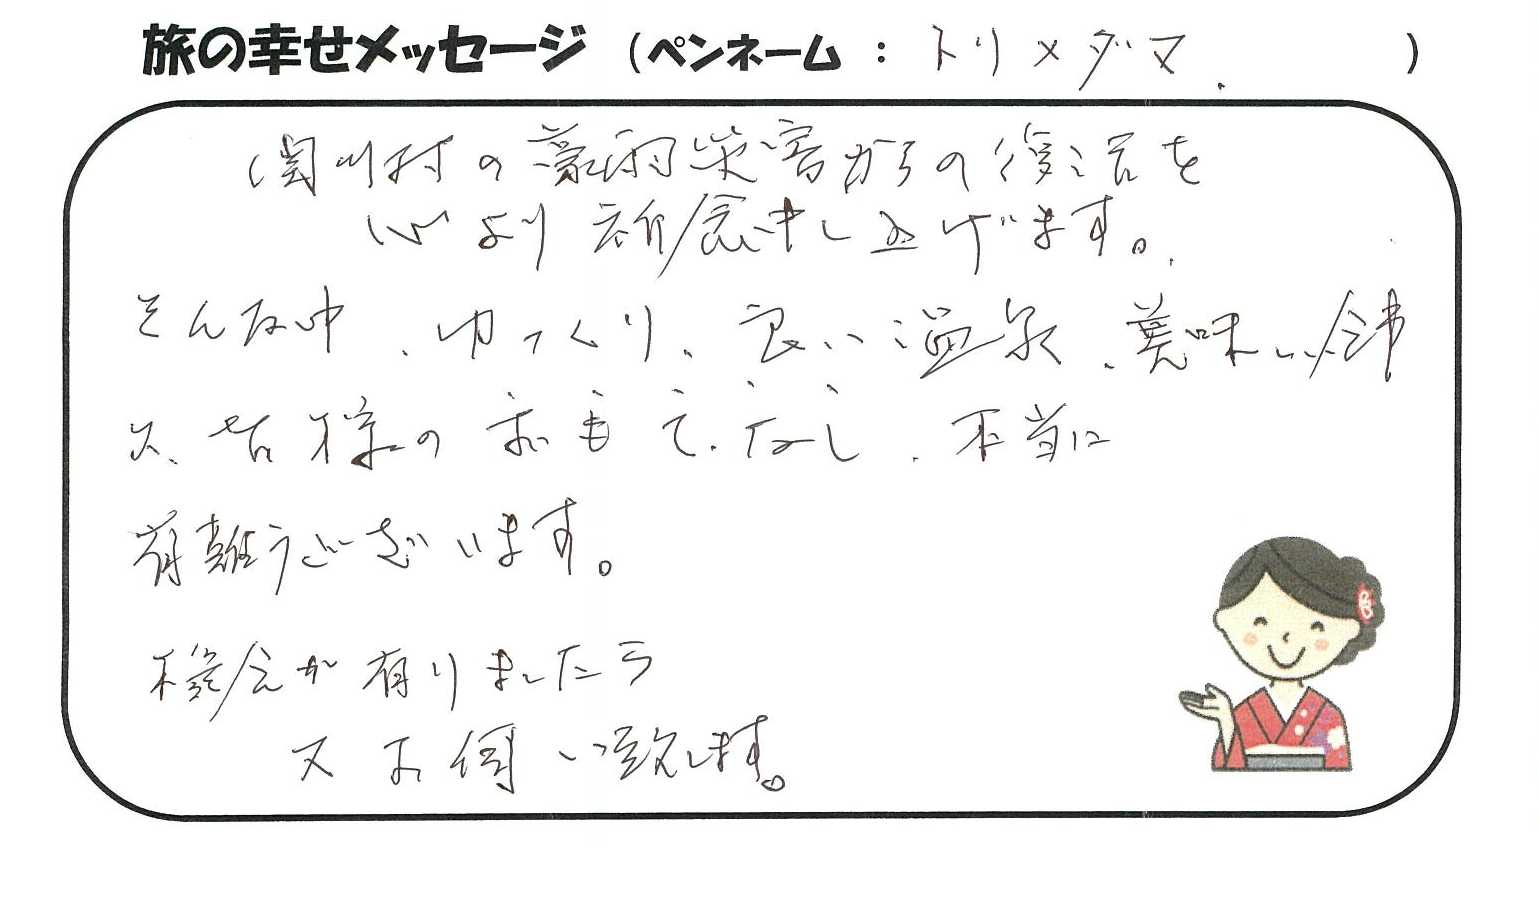 旅の幸せメッセージ (ペンネーム : トリメダマ. )
関川村の豪雨災害からの復活を
心より祈念申し上げます。
そんな中、ゆっくり、良い温泉、美味しい食事
又、皆様のおもてなし、本当に
有難うございます。
機会が有りましたら
又お伺い致します。